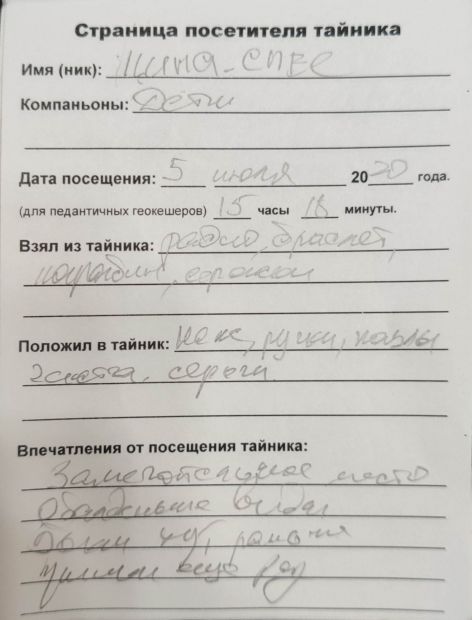 Страница посетителя тайника
Имя (ник):
Компаньоны: Дети
Дата посещения: 5 июля 2020 года.
(для педантичных геокешеров) 15 часы 18 минуты.
Взял из тайника: радио, браслет,
Положил в тайник: ручки, пазлы
серьги
Впечатления от посещения тайника:
Замечательное место
Обалденные виды
раньше
еще раз